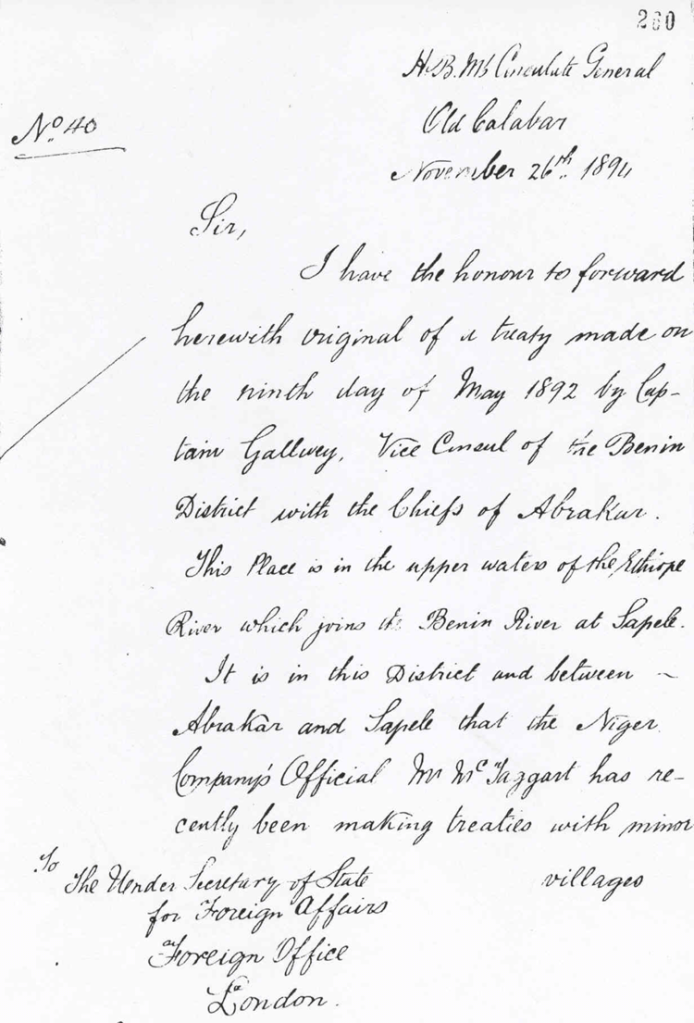 260
H.B.M's Consulate General
Old Calabar
November 26th 1894
No. 40
Sir,
I have the honour to forward
herewith original of a treaty made on
the ninth day of May 1892 by Cap-
tain Gallwey, Vice Consul of the Benin
District with the Chiefs of Abrakar.
This Place is in the upper waters of the Ethiope
River which joins the Benin River at Sapele.
It is in this District and between
Abrakar and Sapele that the Niger
Company's Official Mr McTaggart has re-
cently been making treaties with minor
villages
To
The Under Secretary of State
for Foreign Affairs
Foreign Office
London.